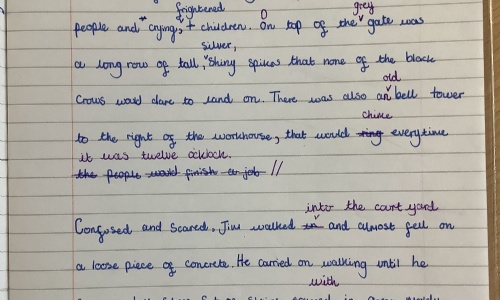 frightened grey
people and crying, + children. On top of the gate was
silver,
a long row of tall, shiny spikes that none of the black
old
crows would dare to land on. There was also an bell tower
chime
to the right of the workhouse, that would ring everytime
it was twelve o'clock.
the people would finish a job //
into the court yard
Confused and scared, Jim walked in and almost fell on
a loose piece of concrete. He carried on walking until he
with